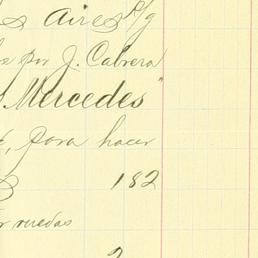 Aires P/g
por J. Cabrera
Mercedes"
, para hacer
182
r ruedas
2